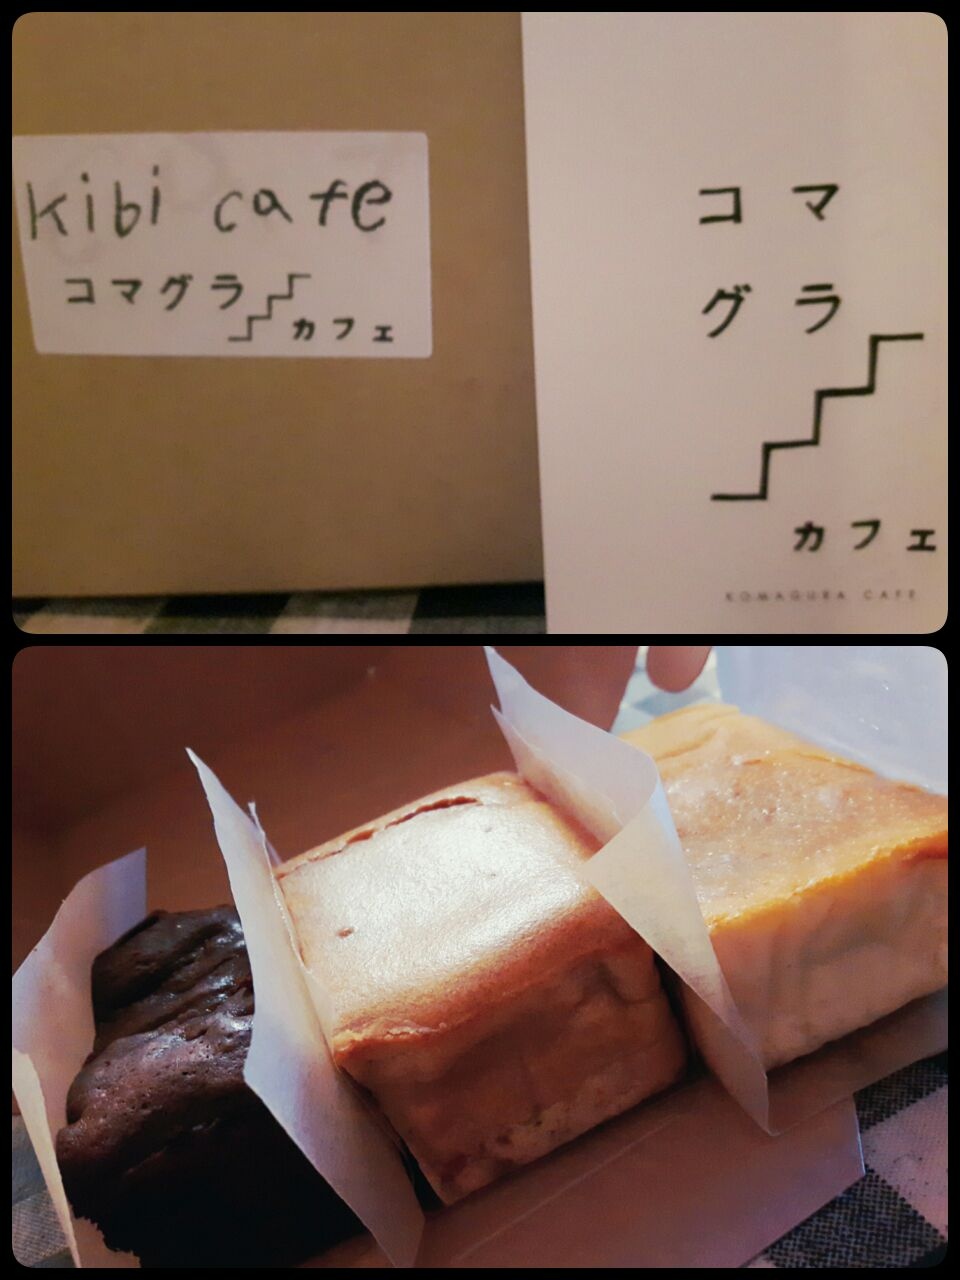 kibi cafe
コマグラ
カフェ
コマ
グラ
カフェ
KOMAGURA CAFE